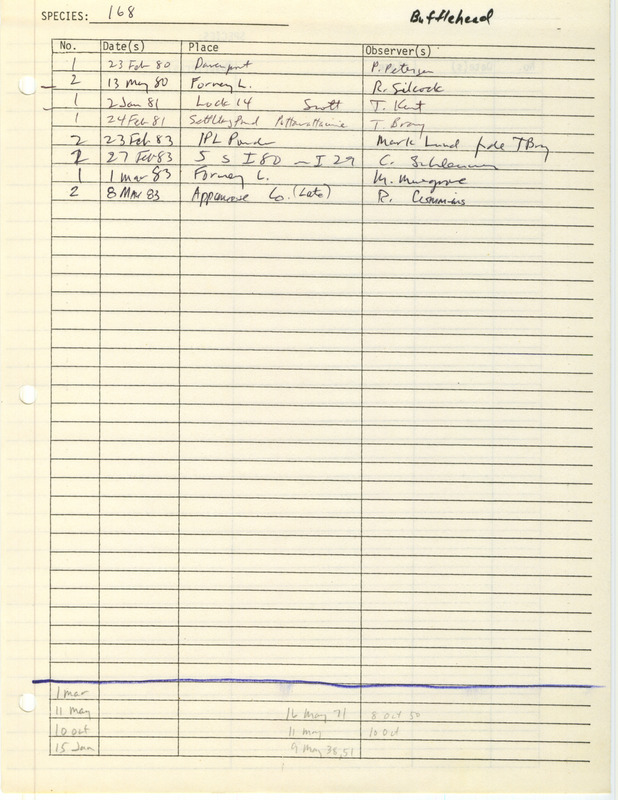 SPECIES: 168 Bufflehead
No. Date(s) Place Observer(s)
1 23 Feb 80 Davenport P. Petersen
2 13 May 80 Forney L. R. Silcock
1 2 Jan 81 Lock 14 Scott T. Kent
1 24 Feb 81 Settling Pond Pottawattamie T. Bray
2 23 Feb 83 IPL Ponds Mark Lund fide T Bray
2 27 Feb 83 5 S I 80 - I 29 C.
1 1 Mar 83 Forney L. M. Musgrove
2 8 Mar 83 Appanoose Co. (Late) R. Cummins
1 Mar
11 May 16 May 71 8 Oct 50
10 Oct 11 May 10 Oct
15 Jan 9 May 38,51